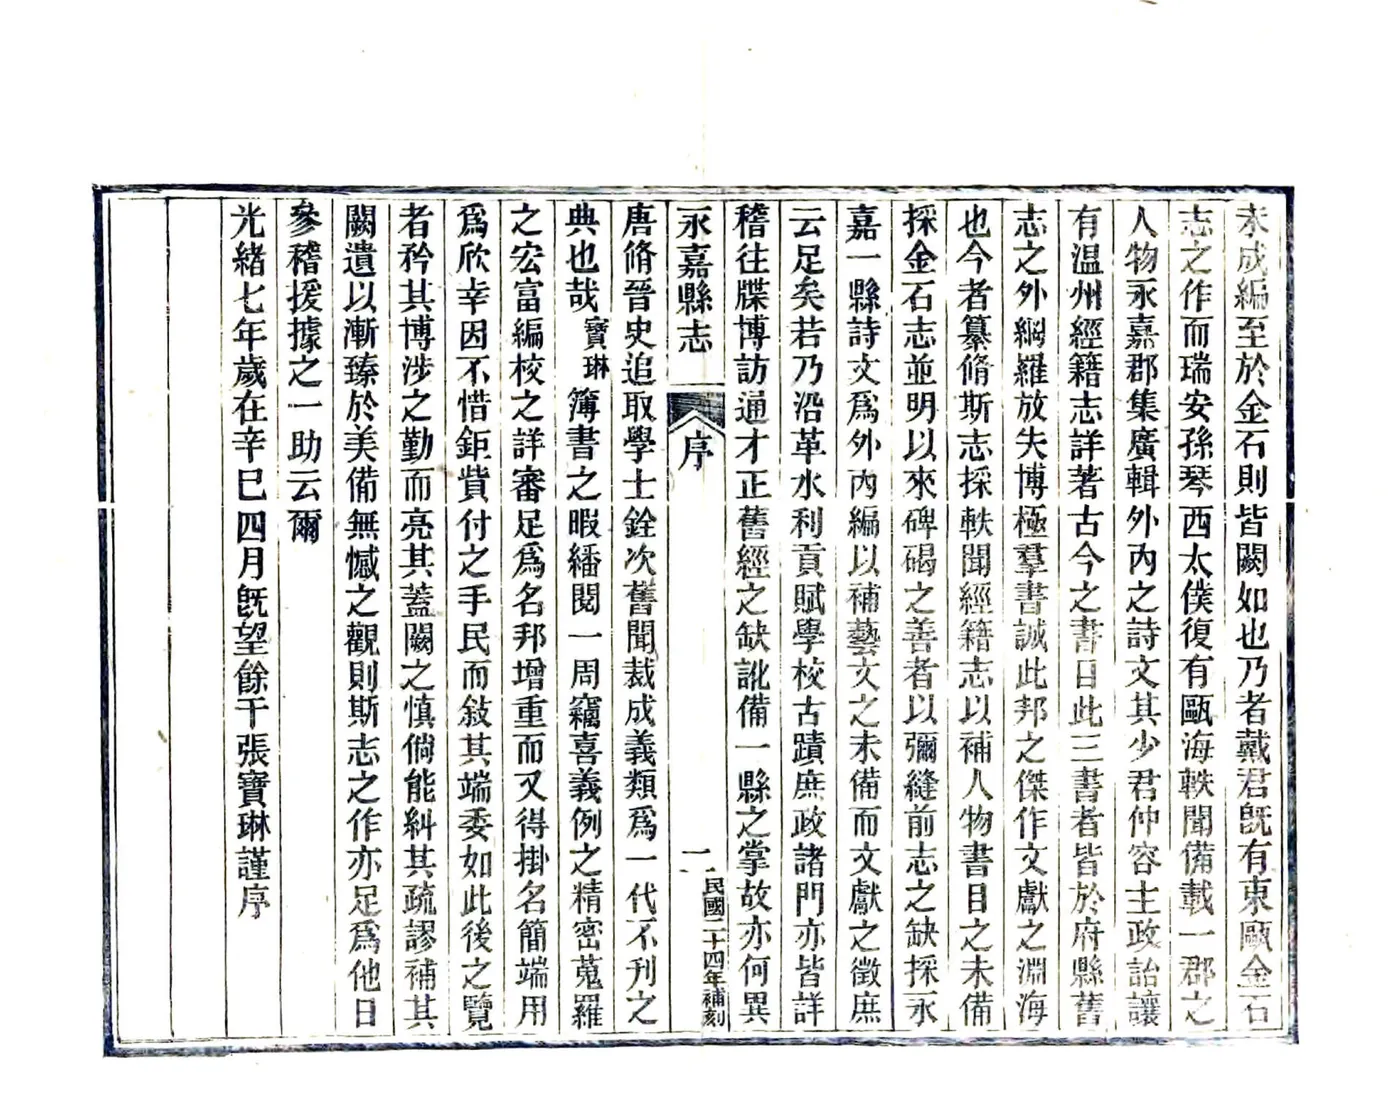 未成編至於金石則皆闕如也乃者戴君旣有東甌金石
志之作而瑞安孫琴西太僕復有甌海軼聞備載一郡之
人物永嘉郡集廣輯外內之詩文其少君仲容主政詒讓
有温州經籍志詳著古今之書目此三書者皆於府縣舊
志之外綱羅放失博極羣書誠此邦之傑作文獻之淵海
也今者纂脩斯志採軼聞經籍志以補人物書目之未備
採金石志並明以來碑碣之善者以彌縫前志之缺採永
嘉一縣詩文爲外內編以補藝文之未備而文獻之徵庶
云足矣若乃沿革水利貢賦學校古蹟庶政諸門亦皆詳
稽往牒博訪通才正舊經之缺訛備一縣之掌故亦何異
永嘉縣志 序 一 民國二十四年補刻
唐脩晉史追取學士銓次舊聞裁成義類爲一代不刊之
典也哉寶琳簿書之暇繙閱一周竊喜義例之精密蒐羅
之宏富編校之詳審足爲名邦增重而又得掛名簡端用
爲欣幸因不惜鉅貲付之手民而敍其端委如此後之覽
者矜其博涉之勤而亮其蓋闕之慎倘能糾其疏謬補其
闕遺以漸臻於美備無憾之觀則斯志之作亦足爲他日
參稽援據之一助云爾
光緒七年歲在辛巳四月旣望餘干張寶琳謹序